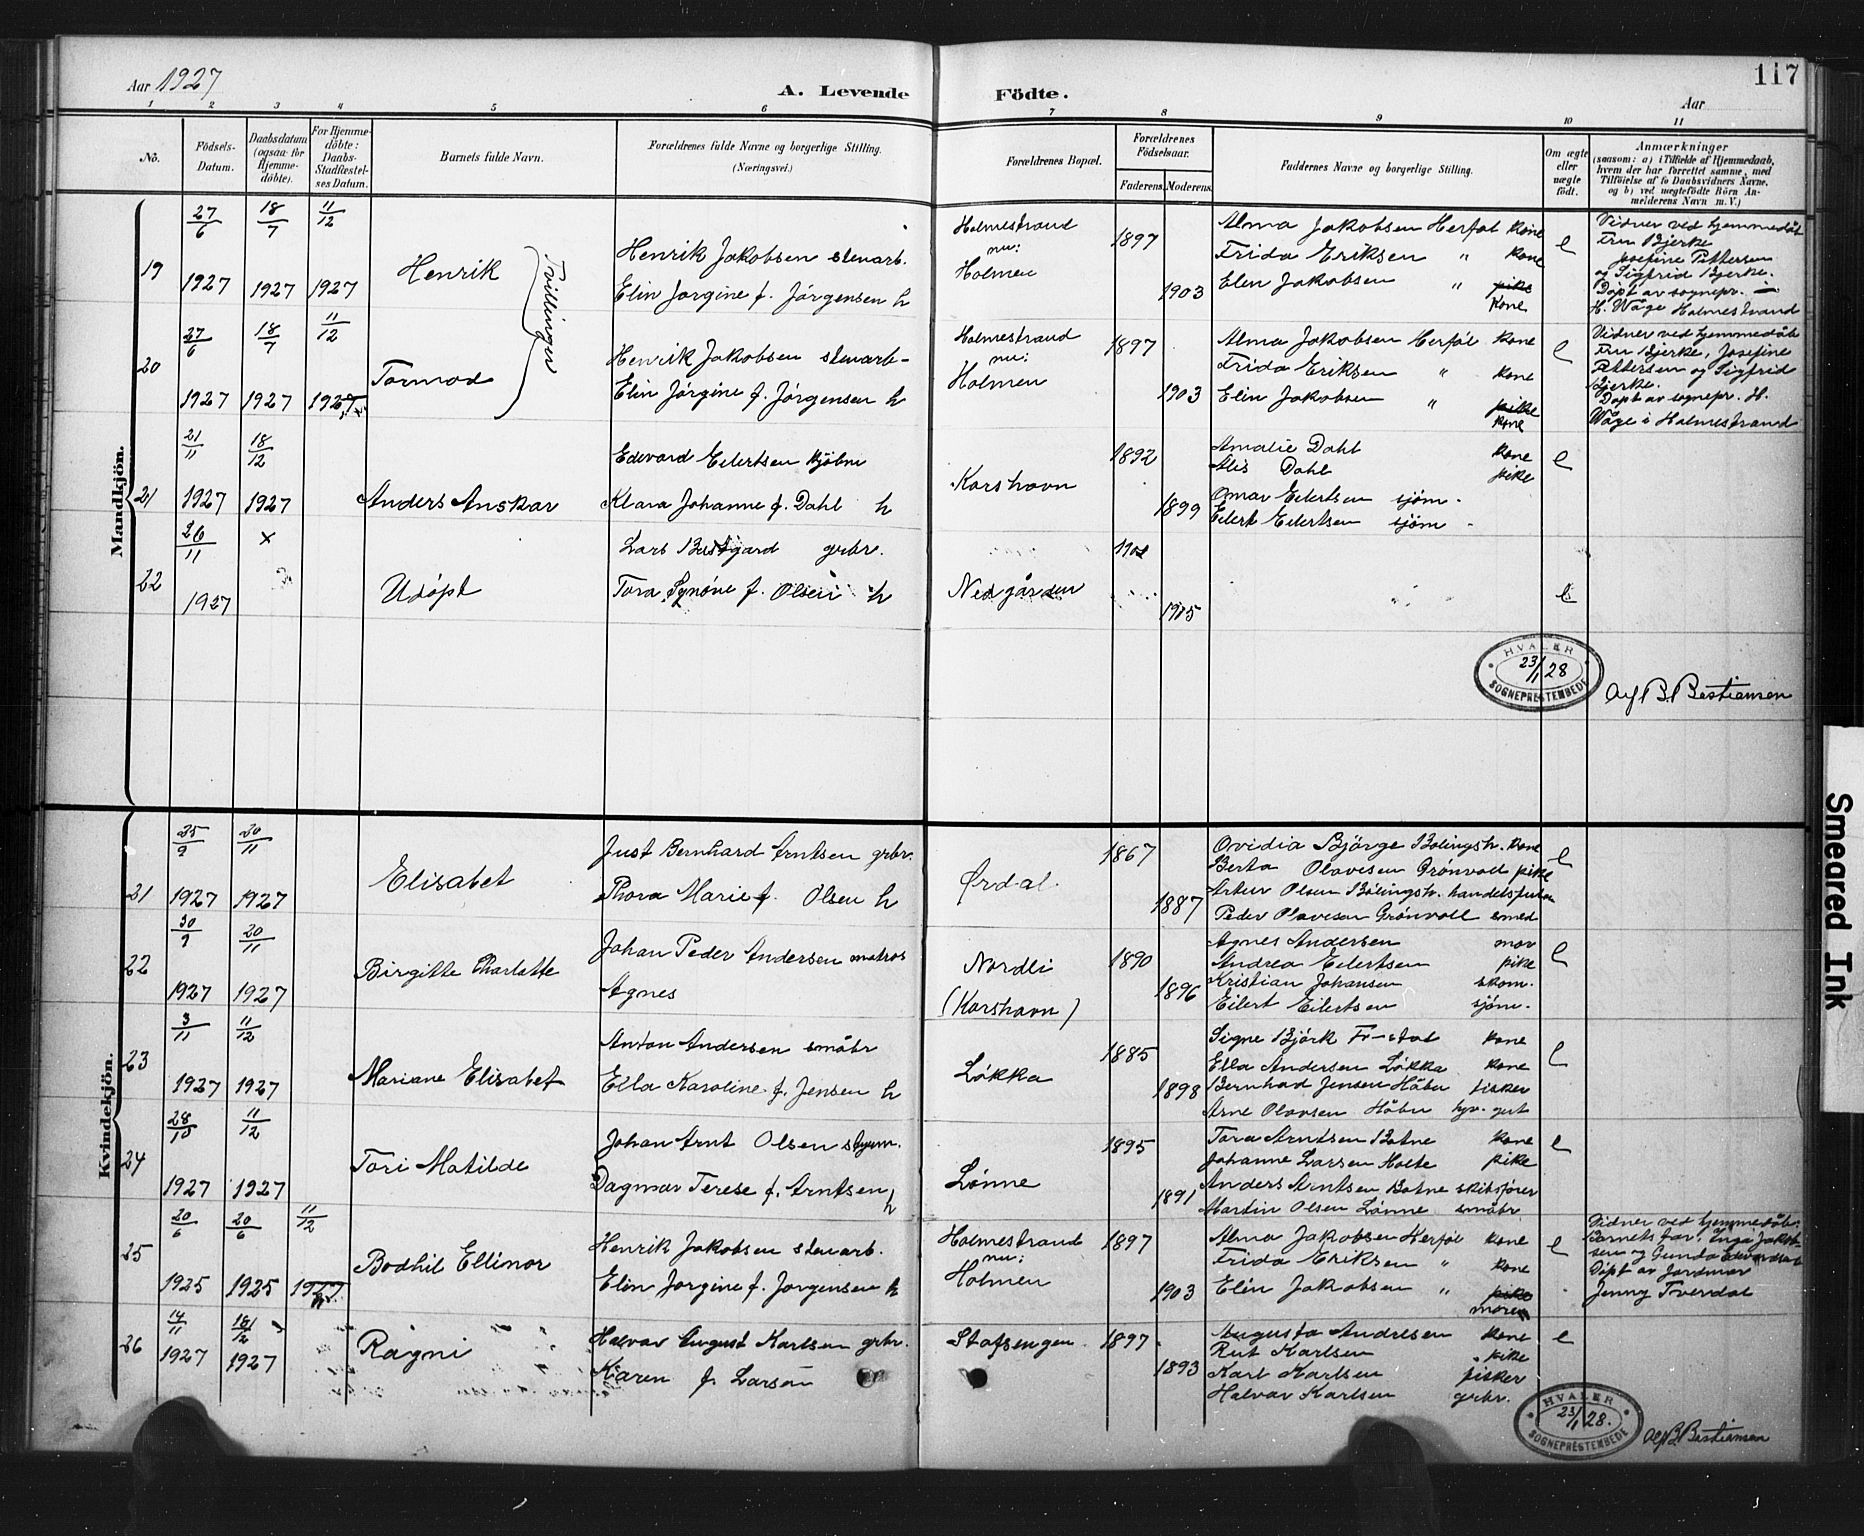 Aar 1927
A. Levende Födte.
117
Aar
1 2 3 4 5 6 7 8 9 10 11
No.
Födsels-Datum.
Daabsdatum (ogsaa for Hjemmedöbte).
For Hjemmedöbte: Daabs-Stadfæstelses Datum.
Barnets fulde Navn.
Forældrenes fulde Navne og borgerlige Stilling. (Næringsvei.)
Forældrenes Bopæl.
Forældrenes Födselsaar.
Faderens. Moderens.
Faddernes Navne og borgerlige Stilling.
Om ægte eller uægte födt.
Anmærkninger
(saasom: a) i Tilfælde af Hjemmedaab, hvem der har forrettet samme, med Tilföielse af to Daabsvidners Navne, og b) ved uægtefödte Börn Anmelderens Navn m.V.)
Mandkjön.
19 27/6 1927 18/7 1927 11/12 1927 Henrik
Tvillinger
Henrik Jakobsen stenarb.
Elin Jørgine f. Jørgensen h
Holmestrand
nu:
Holmen
1897 1903
Alma Jakobsen Herføl kone
Frida Eriksen " kone
Elin Jakobsen " pike
kone
e
Vidner ved hjemmedåb
Fru Bjerke
Josefine Pettersen
og Sigfrid Bjerke.
Döpt av sognepr.
H. Wåge Holmestrand
20 27/6 1927 18/7 1927 11/12 1927 Tormod
Henrik Jakobsen stenarb-
Elin Jørgine f. Jørgensen h
Holmestrand
nu:
Holmen
1897 1903
Alma Jakobsen Herføl kone
Frida Eriksen " kone
Elin Jakobsen " pike
kone
e
Vidner ved hjemmedåb
Fru Bjerke, Josefine
Pettersen og Sigfrid
Bjerke.
Döpt av sognepr. H.
Wåge i Holmestrand
21 21/11 1927 18/12 1927 Anders Anskar
Edevard Eilertsen
Klara Johanne f. Dahl h
Korshavn
1892 1899
Amalie Dahl kone
Alis Dahl pike
Omar Eilertsen sjøm.
Eilert Eilertsen sjøm.
e
22 26/11 1927 x Udøpt
Lars Bustgard grbr.
Tora Synøve f. Olsen h
Nedgården
1905
e
HVALER
23/1 28
SOGNEPRESTEMBEDE
Alf B. Bastiansen
Kvindekjön.
21 25/9 1927 20/11 1927 Elisabet
Just Bernhard Arntsen grbr.
Thora Marie f. Olsen h
Ørdal
1867 1887
Ovidia Bjørge Bølingsh. kone
Berta Olavesen Grønvoll pike
Artur Olsen Bølingsh.
Peder Olavesen Grønvoll smed
e
22 30/9 1927 20/11 1927 Birgitte Charlotte
Johan Peder Andersen matros
Agnes
Nordli
(Korshavn)
1890 1896
Agnes Andersen mor
Andrea Eilertsen pike
Kristian Johansen skom.
Eilert Eilertsen sjøm.
e
23 3/11 1927 11/12 1927 Mariane Elisabet
Anton Andersen småbr
Ella Karoline f. Jensen h
Løkka
1885 1898
Signe Bjørk Fr-stad kone
Ella Andersen Løkka kone
Bernhad Jensen Håbu fisker
Arne Olavsen Håbu
e
24 28/10 1927 11/12 1927 Tori Matilde
Johan Arnt Olsen styrm.
Dagmar Terese f. Arntsen h
Lønne
1895 1891
Tora Arntsen Botne kone
Johanne Larsen Holte pike
Anders Arntsen Botne skibsfører
Martin Olsen Lønne småbr
e
25 20/6 1925 20/6 1925 11/12 1927 Bodhil Ellinor
Henrik Jakobsen stenarb.
Elin Jørgine f. Jørgensen h
Holmestrand
nu:
Holmen
1897 1903
Alma Jakobsen Herføl kone
Frida Eriksen " kone
Elin Jakobsen " pike
moren
e
Vidner ved hjemmedåb:
Barnets far, Inga Jakob-
sen og Gunda Edvardsen
Döpt av Jordmor
Jenny Tverdal
26 14/11 1927 18/12 1927 Ragni
Halvar August Karlsen grbr.
Karen f. Larsen
Stafsengen
1897 1893
Augusta Andresen kone
Rut Karlsen pike
Karl Karlsen fisker
Halvar Karlsen grbr.
e
HVALER
23/1 28.
SOGNEPRESTEMBEDE
Alf B. Bastiansen
Smeared Ink